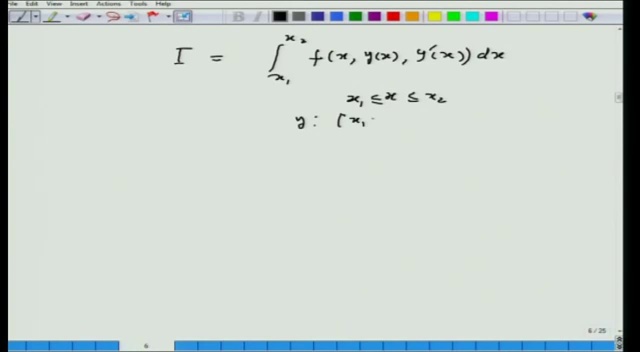 File Edit View Insert Actions Tools Help
I = ∫_{x₁}^{x₂} f(x, y(x), y′(x)) dx
x₁ ≤ x ≤ x₂
y : [x₁
6 / 25
6